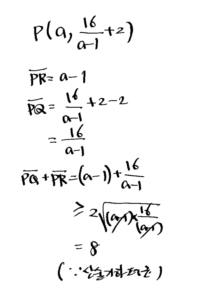 P(a, 16/(a-1) +2)
PR = a-1
PQ = 16/(a-1) +2-2
= 16/(a-1)
PQ + PR = (a-1) + 16/(a-1)
≥ 2√((a-1)× 16/(a-1))
= 8
(∵ 산술기하평균)